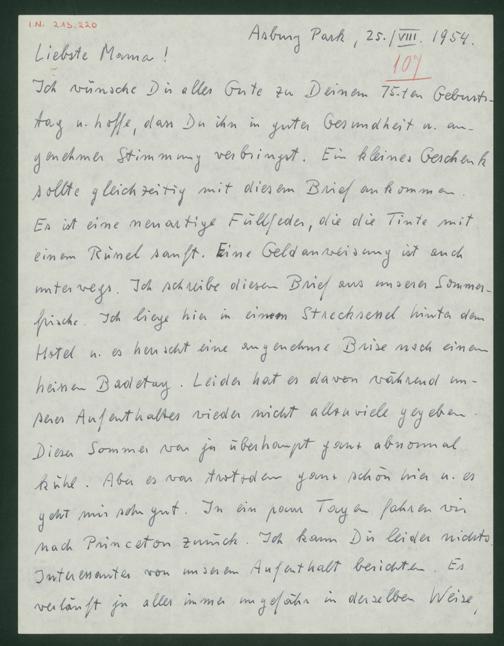 I.N. 213.220
Asbury Park, 25./VIII. 1954.
107
Liebste Mama!
Ich wünsche Dir alles Gute zu Deinem 75-ten Geburts-
tag u. hoffe, dass Du ihn in guter Gesundheit u. an-
genehmer Stimmung verbringst. Ein kleines Geschenk
sollte gleichzeitig mit diesem Brief ankommen.
Es ist eine neuartige Füllfeder, die die Tinte mit
einem Rüssel sauft. Eine Geldanweisung ist auch
unterwegs. Ich schreibe diesen Brief aus unserer Sommer-
frische. Ich liege hier in einem Strecksessel hinter dem
Hotel u. es herrscht eine angenehme Brise nach einem
heissen Badetag. Leider hat es davon während un-
seres Aufenthaltes wieder nicht allzuviele gegeben.
Dieser Sommer war ja überhaupt ganz abnormal
kühl. Aber es war trotzdem ganz schön hier u. es
geht mir sehr gut. In ein paar Tagen fahren wir
nach Princeton zurück. Ich kann Dir leider nichts
Interessantes von unserem Aufenthalt berichten. Es
verläuft ja alles immer ungefähr in derselben Weise,